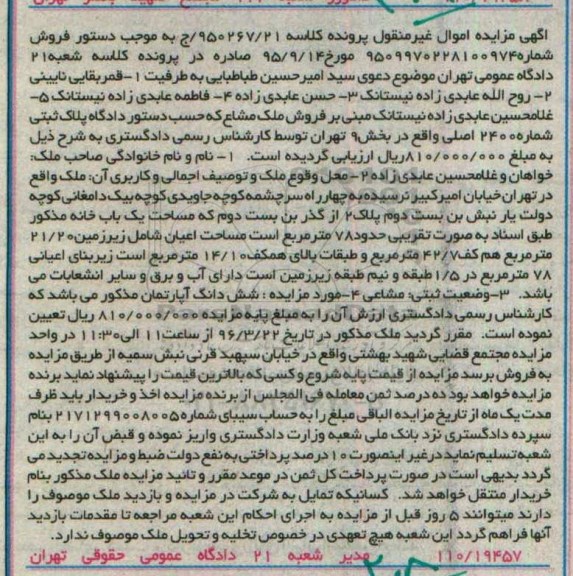 آگهی مزایده اموال غیرمنقول پرونده کلاسه ۹۵۰۲۶۷/۲۱/ج به موجب دستور فروش
شماره ۹۵۰۹۹۷۰۲۲۸۱۰۰۹۷۴ مورخ ۹۵/۹/۱۴ صادره در پرونده کلاسه شعبه ۲۱
دادگاه عمومی تهران موضوع دعوی سید امیرحسین طباطبایی به طرفیت ۱-قمربقایی نایینی
۲- روح الله عابدی زاده نیستانک ۳- حسن عابدی زاده ۴- فاطمه عابدی زاده نیستانک ۵-
غلامحسین عابدی زاده نیستانک مبنی بر فروش ملک مشاع که حسب دستور دادگاه پلاک ثبتی
شماره ۲۴۰۰ اصلی واقع در بخش ۹ تهران توسط کارشناس رسمی دادگستری به شرح ذیل
به مبلغ ۸۱۰/۰۰۰/۰۰۰ ریال ارزیابی گردیده است. ۱- نام و نام خانوادگی صاحب ملک:
خواهان و غلامحسین عابدی زاده ۲- محل وقوع ملک و توصیف اجمالی و کاربری آن: ملک واقع
در تهران خیابان امیرکبیر نرسیده به چهارراه سرچشمه کوچه جاویدی کوچه بیک دامغانی کوچه
دولت یار نبش بن بست دوم پلاک ۲ از گذر بن بست دوم که مساحت یک باب خانه مذکور
طبق اسناد به صورت تقریبی حدود ۷۸ مترمربع است مساحت اعیان شامل زیرزمین ۲۱/۲۰
مترمربع هم کف ۴۲/۷ مترمربع و طبقات بالای همکف ۱۴/۱۰ مترمربع است زیربنای اعیانی
۷۸ مترمربع در ۱/۵ طبقه و نیم طبقه زیرزمین است دارای آب و برق و سایر انشعابات می
باشد. ۳-وضعیت ثبتی: مشاعی ۴-مورد مزایده: شش دانگ آپارتمان مذکور می باشد که
کارشناس رسمی دادگستری ارزش آن را به مبلغ پایه مزایده ۸۱۰/۰۰۰/۰۰۰ ریال تعیین
نموده است. مقرر گردید ملک مذکور در تاریخ ۹۶/۳/۲۲ از ساعت ۱۱ الی ۱۱:۳۰ در واحد
مزایده مجتمع قضایی شهید بهشتی واقع در خیابان سپهبد قرنی نبش سمیه از طریق مزایده
به فروش برسد مزایده از قیمت پایه شروع و کسی که بالاترین قیمت را پیشنهاد نماید برنده
مزایده خواهد بود ده درصد ثمن معامله فی المجلس از برنده مزایده اخذ و خریدار باید ظرف
مدت یک ماه از تاریخ مزایده الباقی مبلغ را به حساب سیبای شماره ۲۱۷۱۲۹۹۰۰۸۰۰۵ بنام
سپرده دادگستری نزد بانک ملی شعبه وزارت دادگستری واریز نموده و قبض آن را به این
شعبه تسلیم نماید در غیر اینصورت ۱۰ درصد پرداختی به نفع دولت ضبط و مزایده تجدید می
گردد بدیهی است در صورت پرداخت کل ثمن در موعد مقرر و تائید مزایده ملک مذکور بنام
خریدار منتقل خواهد شد. کسانیکه تمایل به شرکت در مزایده و بازدید ملک موصوف را
دارند میتوانند ۵ روز قبل از مزایده به اجرای احکام این شعبه مراجعه تا مقدمات بازدید
آنها فراهم گردد این شعبه هیچ تعهدی در خصوص تخلیه و تحویل ملک موصوف ندارد.
۱۱۰/۱۹۴۵۷ مدیر شعبه ۲۱ دادگاه عمومی حقوقی تهران